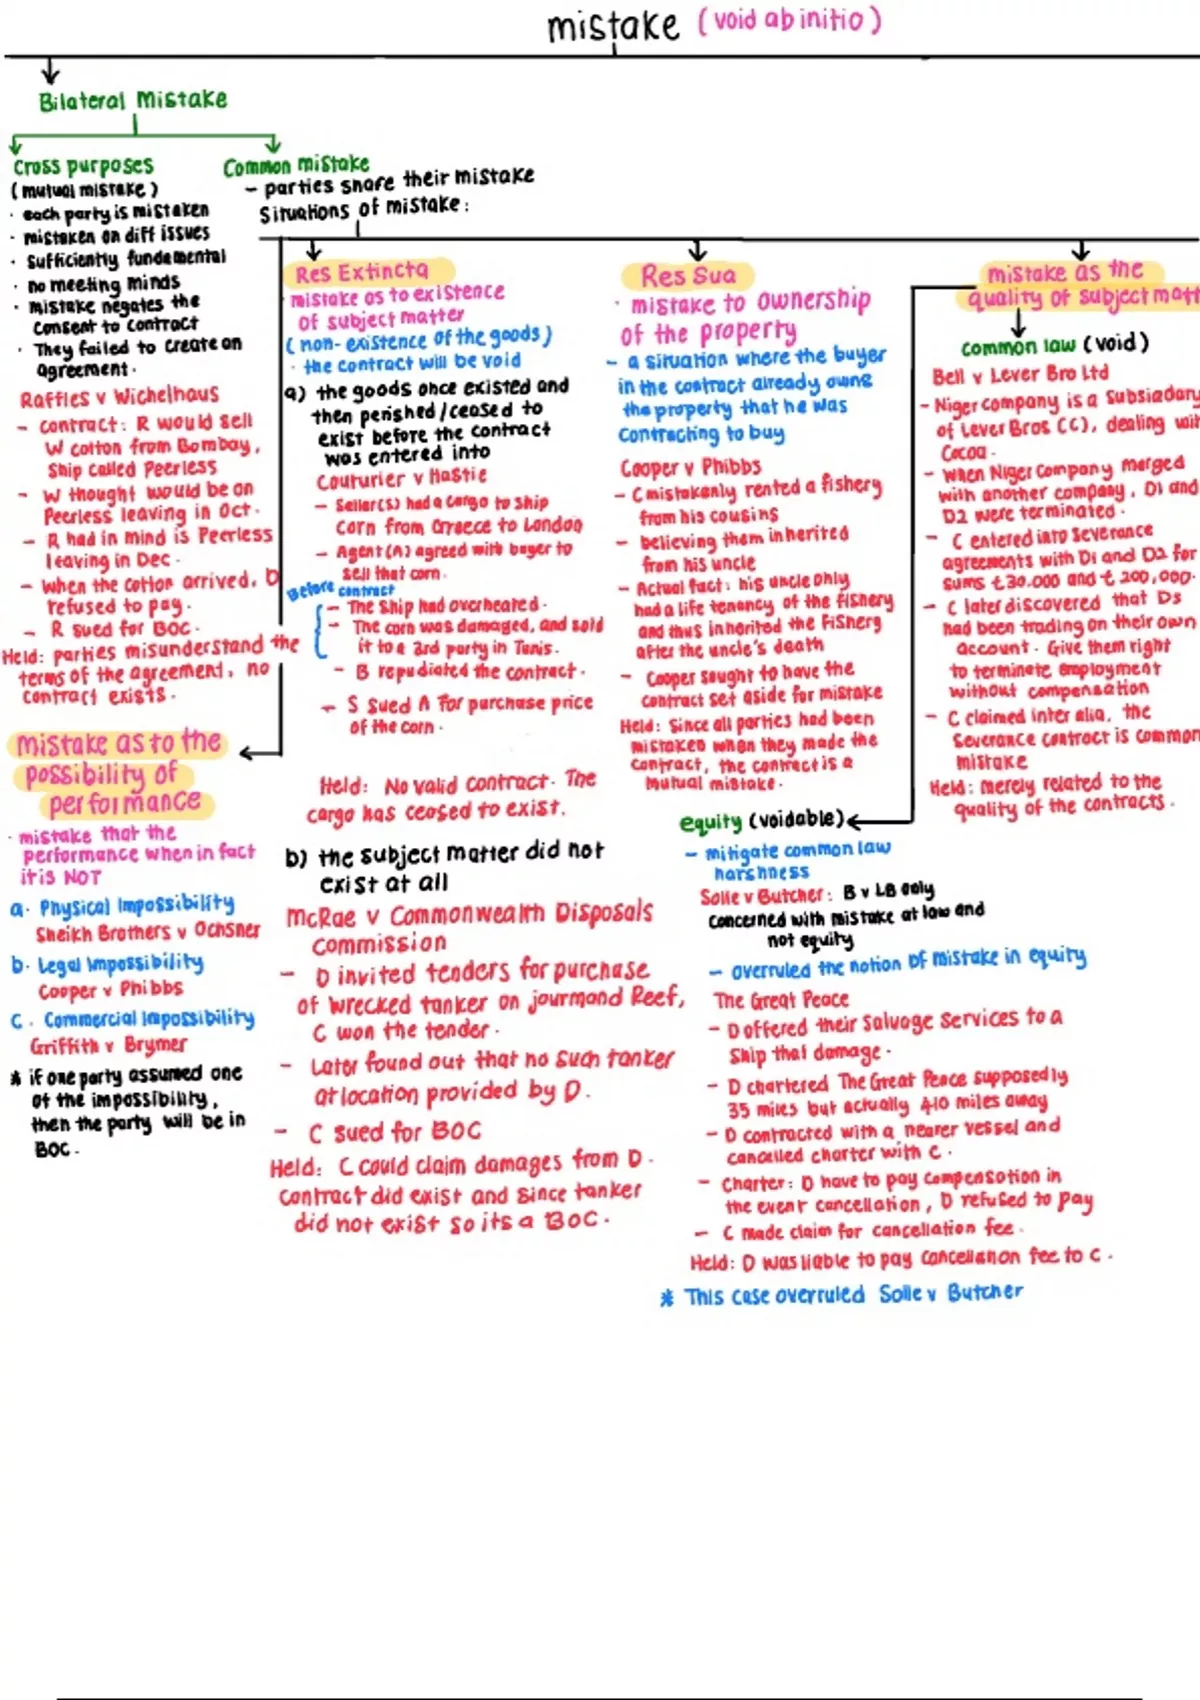 mistake (void ab initio)
Bilateral Mistake
Cross purposes
(mutual mistake)
· each party is mistaken
· mistaken on diff issues
· Sufficiently fundamental
· no meeting minds
· mistake negates the
consent to contract
· They failed to create an
agreement.
Raffles v Wichelhaus
- contract: R would sell
W cotton from Bombay,
Ship called Peerless
- W thought would be on
Peerless leaving in Oct.
- R had in mind is Peerless
leaving in Dec.
- When the cotton arrived, D
refused to pay.
- R sued for BOC.
Held: parties misunderstand the
terms of the agreement, no
contract exists.
Common mistake
- parties share their mistake
Situations of mistake:
mistake as to the
possibility of
performance
· mistake that the
performance when in fact
it is NOT
a. Physical Impossibility
Sheikh Brothers v Ochsner
b. Legal Impossibility
Cooper v Phibbs
C. Commercial Impossibility
Griffith v Brymer
* if one party assumed one
of the impossibility,
then the party will be in
BOC.
Res Extincta
· mistake as to existence
of subject matter
(non-existence of the goods)
· the contract will be void
a) the goods once existed and
then perished/ceased to
exist before the contract
was entered into
Couturier v Hastie
- Seller(S) had a cargo to ship
corn from Greece to London
- Agent(A) agreed with buyer to
sell that corn.
Before contract
- The Ship had overheated.
- The corn was damaged, and sold
it to a 3rd party in Tunis.
- B repudiated the contract.
- S sued A for purchase price
of the corn.
Held: No valid contract. The
cargo has ceased to exist.
b) the subject matter did not
exist at all
McRae v Commonwealth Disposals
Commission
- D invited tenders for purchase
of wrecked tanker on Jourmand Reef,
C won the tender.
- Later found out that no such tanker
at location provided by D.
- C sued for BOC
Held: C could claim damages from D.
contract did exist and since tanker
did not exist so its a BOC.
Res Sua
· mistake to ownership
of the property
- a situation where the buyer
in the contract already owns
the property that he was
Contracting to buy
Cooper v Phibbs
- C mistakenly rented a fishery
from his cousins
- believing them inherited
from his uncle
- Actual fact: his uncle only
had a life tenancy of the fishery
and thus inherited the Fishery
after the uncle's death
- Cooper sought to have the
contract set aside for mistake
Held: Since all parties had been
mistaken when they made the
contract, the contract is a
mutual mistake.
mistake as the
quality of subject matt
common law (void)
Bell v Lever Bro Ltd
- Niger company is a Subsiadary
of Lever Bros (C), dealing with
Cocoa.
- When Niger company merged
with another company, D1 and
D2 were terminated.
- C entered into Severance
agreements with D1 and D2 for
sums £30.000 and £200,000.
- C later discovered that Ds
had been trading on their own
account. Give them right
to terminate employment
without compensation
- C claimed inter alia, the
Severance contract is common
mistake
Held: merely related to the
quality of the contracts.
equity (voidable)
- mitigate common law
harshness
Solle v Butcher: B v LB only
concerned with mistake at law and
not equity
- overruled the notion of mistake in equity
The Great Peace
- D offered their Salvage Services to a
Ship that damage.
- D chartered The Great Peace supposedly
35 miles but actually 410 miles away
- D contracted with a nearer vessel and
cancelled charter with C.
- Charter: D have to pay compensation in
the event cancellation, D refused to pay
- C made claim for cancellation fee.
Held: D was liable to pay cancellation fee to C.
* This case overruled Solle v Butcher